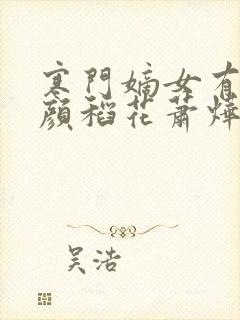 寒門嫡女有
顔稻花蕭燁
吴浩